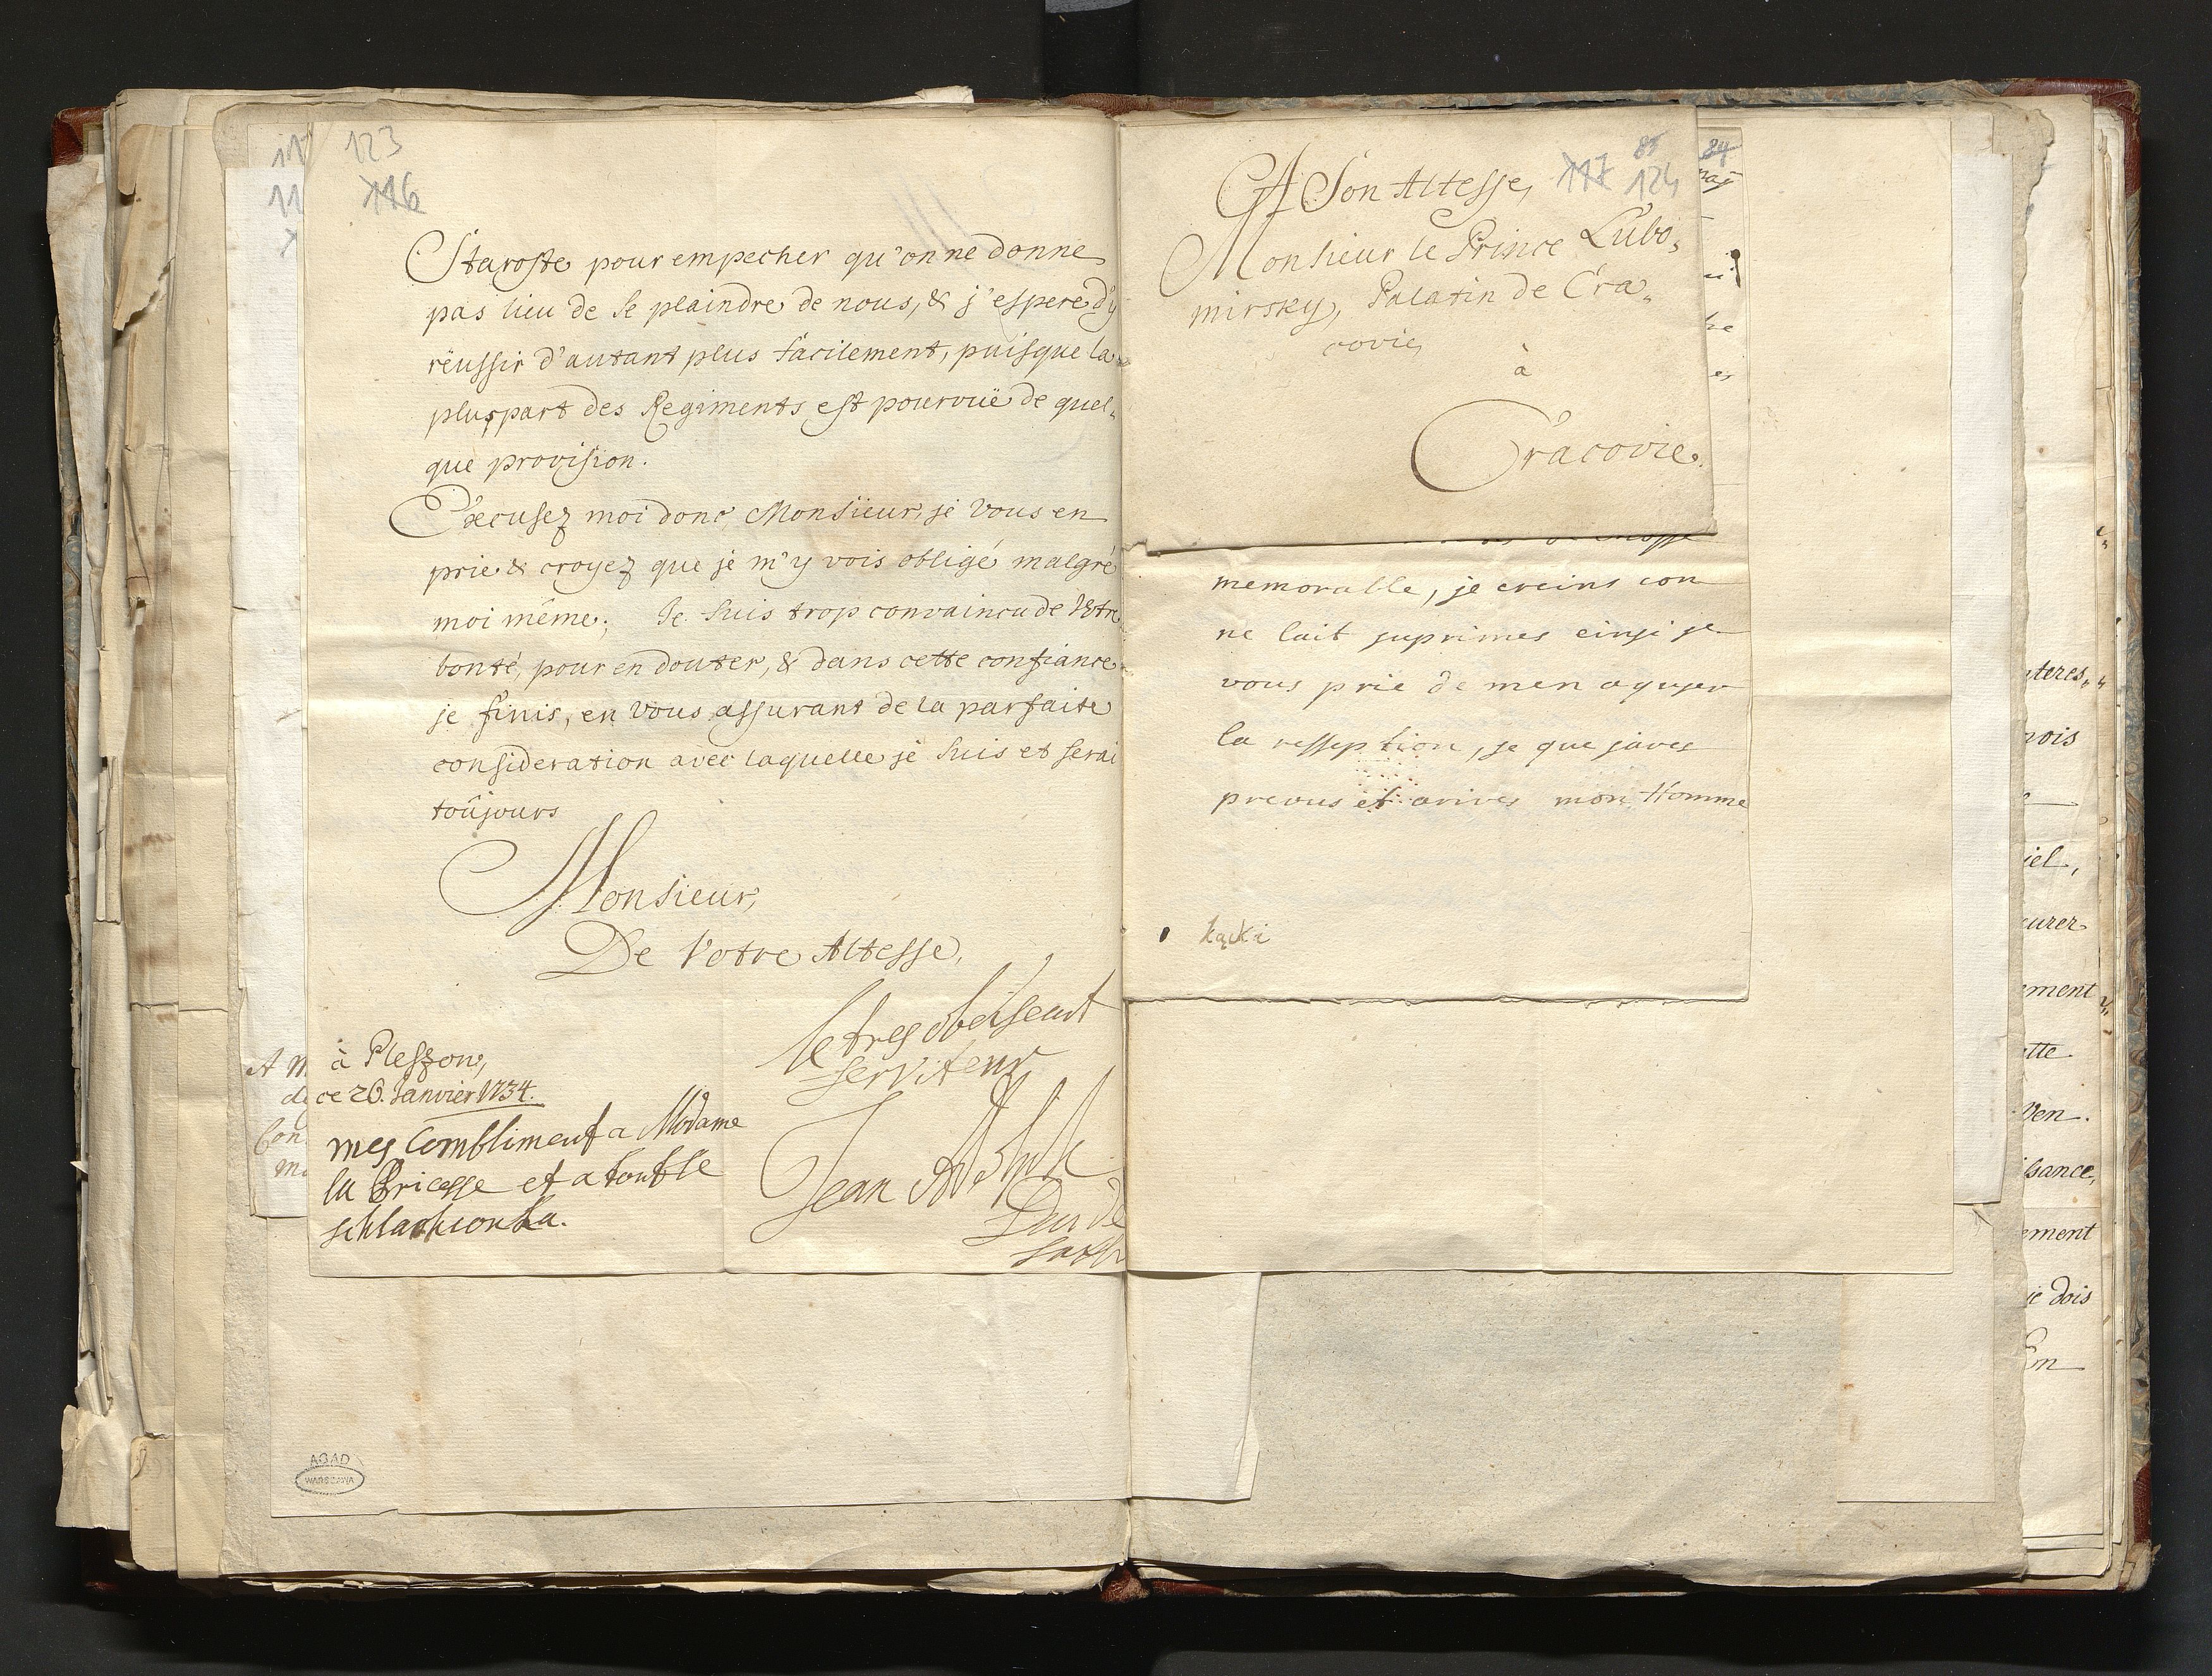 123
116
Staroste pour empecher qu'on ne donne
pas lieu de se plaindre de nous, & j'espere d'y
rëussir d'autant plus facilement, puisque la
pluspart des Regiments est pourvuë de quel„
que provision.
Excusez moi donc, Monsieur, je vous en
prie & croyez que je m'y vois obligé malgré
moi même; Je suis trop convaincu de Votre
bonté, pour en douter, & dans cette confiance
je finis, en vous assurant de la parfaite
consideration avec laquelle je suis et serai
toûjours
Monsieur,
De Votre Altesse,
le tres obeiseant
serviteur
Jean Adolph
Duc de
à Pleszow,
ce 26. Janvier 1734.
mes Combliment a Madame
la Pricesse et a toutte
schlachconka.
AGAD
WARSZAWA
84
85
117 124
A Son Altesse,
Monsieur le Prince Lubo„
mirsky, Palatin de Cra„
covie,
à
Cracovie.
memorable, je creins con
ne lait suprimes einsi je
vous prie de men acuser
la resseption, se que javes
prevus et arives mon Homme
kącki
teres„
nois
iel,
urer
ement
tte
Ven.
isance,
ement
ie dois
En